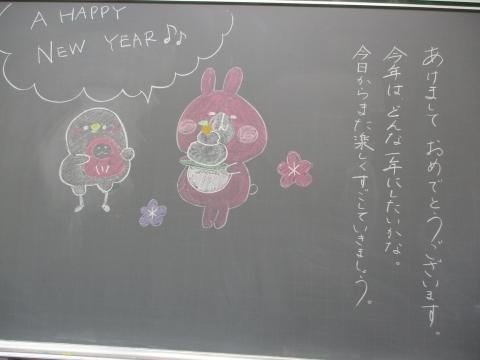 A HAPPY
NEW YEAR♪♪
あけまして おめでとうございます。
今年は どんな一年にしたいかな。
今日からまた楽しくすごしていきましょう。